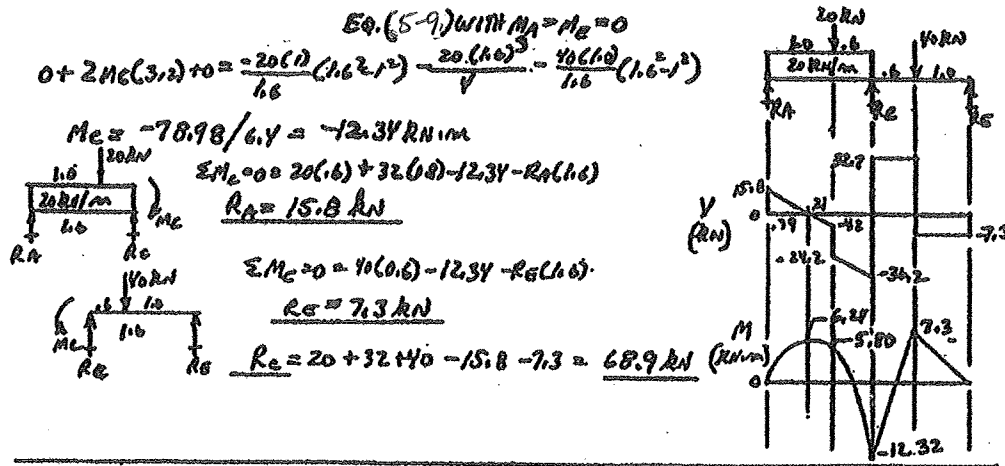 EQ. (5-9) WITH MA = ME = 0
0 + 2MC(3.2) + 0 = -20(1)/1.6 (1.6²-1²) - 20(1.6)³/4 - 40(1.0)/1.6 (1.6²-1²)
MC = -78.98/6.4 = -12.34 kN·m
20kN
1.0
20kN/m
1.6
MC
RA
RC
ΣMC=0= 20(.6) + 32(.8) -12.34 - RA(1.6)
RA = 15.8 kN
40kN
.6
1.0
1.6
MC
RC
RE
ΣMC=0 = 40(0.6) -12.34 - RE(1.6)
RE = 7.3 kN
RC = 20 + 32 + 40 - 15.8 - 7.3 = 68.9 kN
20kN
1.0
.6
40kN
20kN/m
.6
1.0
RA
RC
RE
32.7
15.8
V
(kN)
0
.79
.21
-4.2
-24.2
-36.2
-7.3
M
(kN·m)
6.24
5.80
7.3
0
-12.32